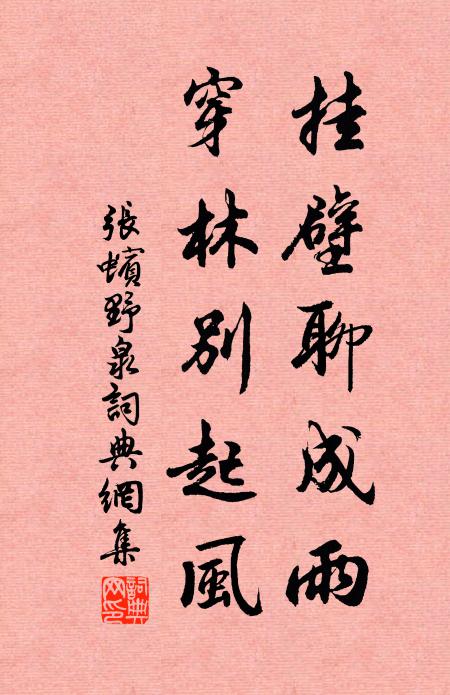 挂壁聊成雨
穿林别起風
張蠙野泉詞典網集
詞典網印